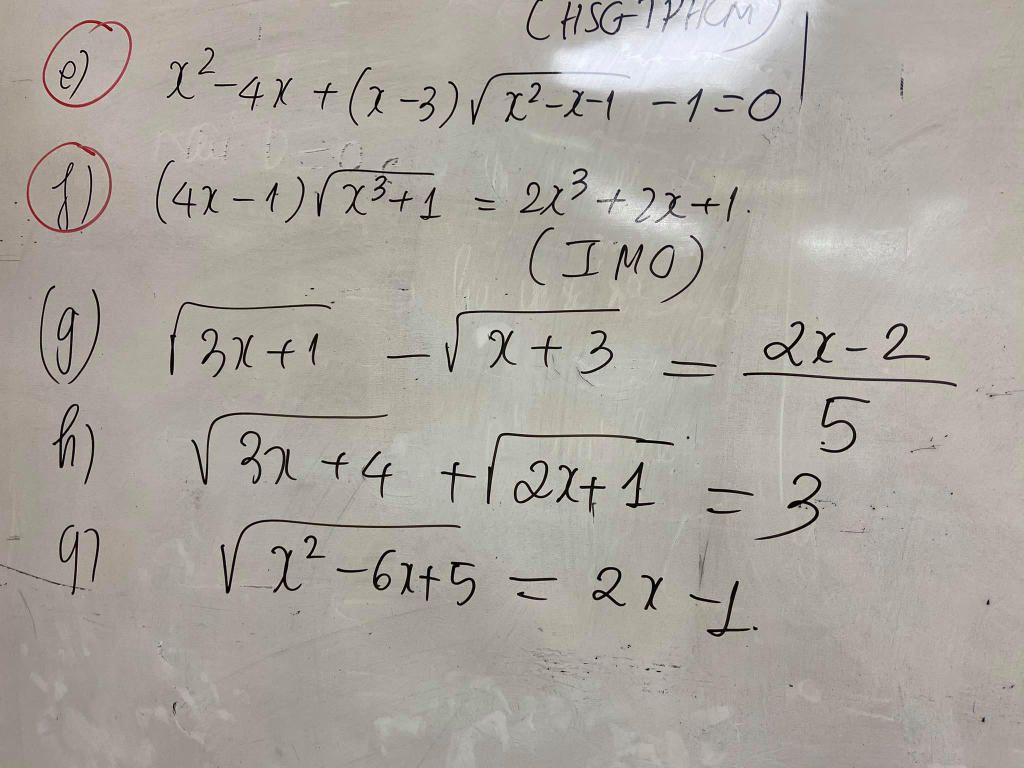 (HSG-TPHCM)
e) x² - 4x + (x - 3)√(x² - x - 1) - 1 = 0
f) (4x - 1)√(x³ + 1) = 2x³ + 2x + 1.
(IMO)
(g) √(3x + 1) - √(x + 3) = (2x - 2)/5
h) √(3x + 4) + √(2x + 1) = 3
q) √(x² - 6x + 5) = 2x - 1.